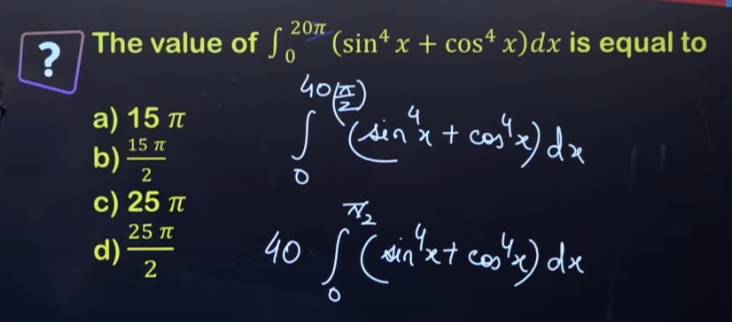 ? The value of ∫₀^{20π} (sin⁴ x + cos⁴ x)dx is equal to
a) 15 π
b) 15 π / 2
c) 25 π
d) 25 π / 2
∫₀^{40(π/2)} (sin⁴x + cos⁴x) dx
40 ∫₀^{π/2} (sin⁴x + cos⁴x) dx